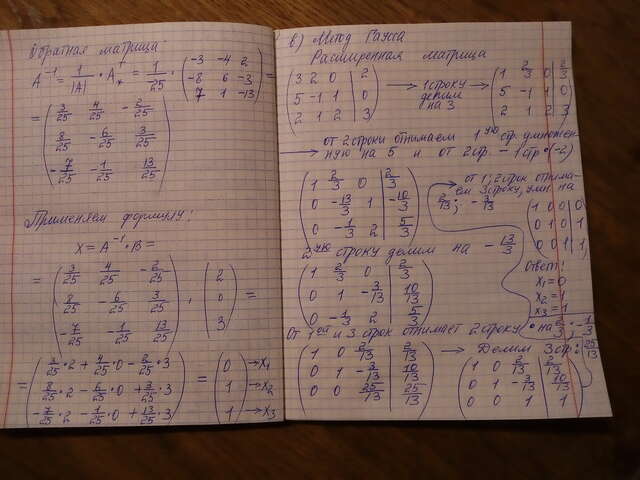 Обратная матрица
A⁻¹ = 1/|A| · A* = 1/25 · (-3 -4 2
-8 6 -3
7 1 -13) =
= (3/25 4/25 -2/25
8/25 -6/25 3/25
-7/25 -1/25 13/25)
Применяем формулу:
X = A⁻¹ · B =
= (3/25 4/25 -2/25
8/25 -6/25 3/25
-7/25 -1/25 13/25) · (2
0
3) =
= (3/25·2 + 4/25·0 - 2/25·3
8/25·2 - 6/25·0 + 3/25·3
-7/25·2 - 1/25·0 + 13/25·3) = (0 → x₁
1 → x₂
1 → x₃)
в) Метод Гаусса
Расширенная матрица
(3 2 0 | 2
5 -1 1 | 0
2 1 2 | 3) → 1 строку делим на 3 → (1 2/3 0 | 2/3
5 -1 1 | 0
2 1 2 | 3)
→ от 2 строки отнимаем 1ую стр. умножен-
ную на 5 и от 2 стр - 1 стр·(-2)
(1 2/3 0 | 2/3
0 -13/3 1 | -10/3
0 -1/3 2 | 5/3)
от 1; 2 строк отнима-
ем 3 строку, умн на
2/13; -3/13
(1 0 0 | 0
0 1 0 | 1
0 0 1 | 1)
2ую строку делим на -13/3
(1 2/3 0 | 2/3
0 1 -3/13 | 10/13
0 -1/3 2 | 5/3)
Ответ:
x₁ = 0
x₂ = 1
x₃ = 1
От 1ой и 3 строк отнимает 2 строку · на 2/3; -1/3
(1 0 2/13 | 2/13
0 1 -3/13 | 10/13
0 0 25/13 | 25/13) → Делим 3 стр : 25/13
(1 0 2/13 | 2/13
0 1 -3/13 | 10/13
0 0 1 | 1)